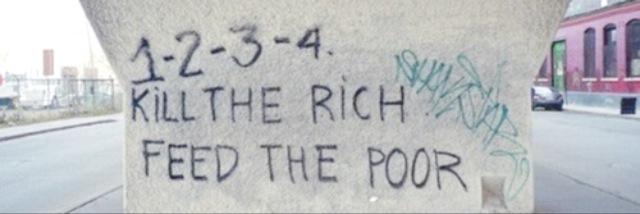 1-2-3-4.
KiLL THE RiCH
FEED THE POOR